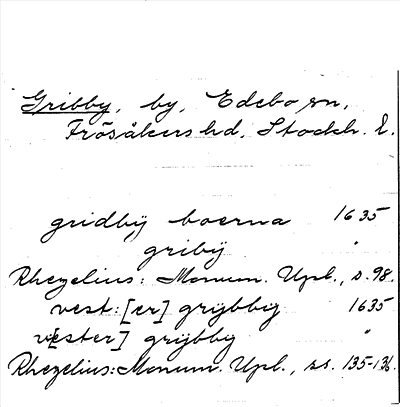 Gribby, by, Edebo sn,
Frösåkers hd, Stockh. l.
gridbÿ boerna 1635
gribÿ "
Rhezelius: Monum. Upl., s. 98.
vest:[er] grijbbij 1635
v[ester] grijbby "
Rhezelius: Monum. Upl., ss. 135-136.